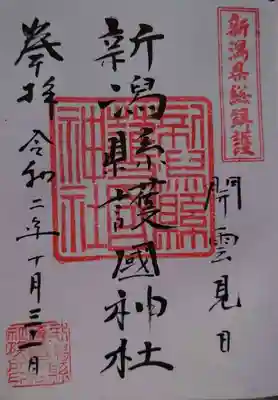 新潟県総鎮護
開雲見日
新潟縣護國神社
新潟縣
護國
神社
奉拝
令和二年十月三十一日